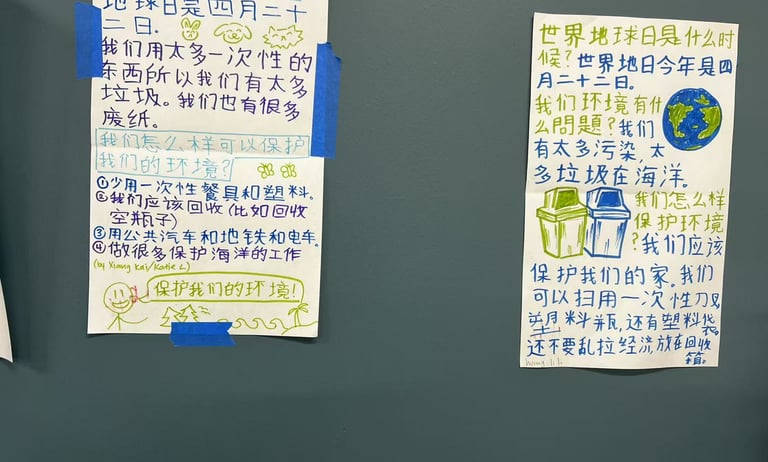 地球日是四月二十
二日.
我们用太多一次性的
东西所以我们有太多
垃圾。我们也有很多
废纸。
我们怎么样可以保护
我们的环境?
①少用一次性餐具和塑料.
②我们应该回收(比如回收
空瓶子)
③用公共汽车和地铁和电车.
④做很多保护海洋的工作
(by Xiang Kai/Katie L)
保护我们的环境!
世界地球日是什么时
候?世界地日今年是四
月二十二日。
我们环境有什
么問題?我们
有太多污染,太
多垃圾在海洋。
我们怎么样
保护环境
?我们应该
保护我们的家。我们
可以扫用一次性刀叉
塑料瓶,还有塑料袋。
还不要乱拉经济,放在回收
箱。